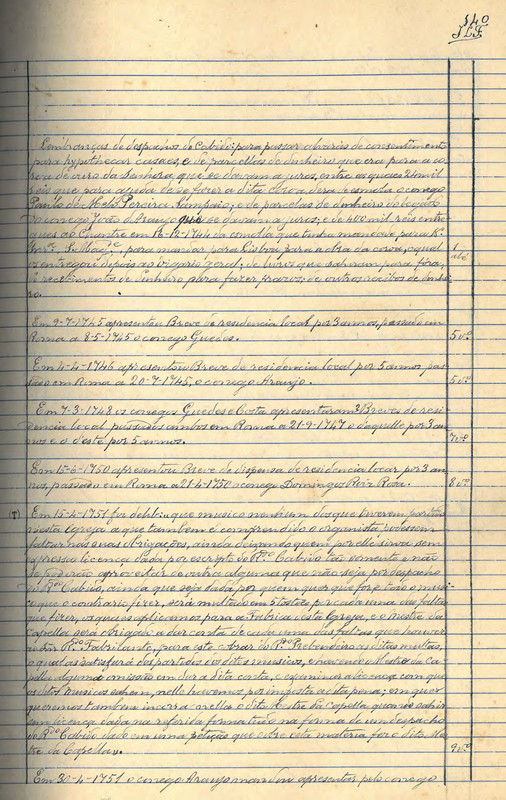 140
Lembranças de despachos do Cabido: para passar alvarás de consentimento
para hypothecar casaes, e de parcellas de dinheiro que era para a co-
rôa de ouro da Senhora que se davam a juros, entre as quaes 20 mil
reis que para ajuda de se fazer a dita corôa dera de esmola o conego
Paulo de Mello Pereira Sampaio; e de parcelas de dinheiro do legado
do conego João d'Araujo que se davam a juros; e de 400 mil réis entre-
gues ao Chantre em 16-12-1744 da esmola que tinha mandado para N.
Snrª. S. Magᵉ. para mandar para Lisboa para a obra da corôa, o qual
os entregaria depois ao Vigario geral; de livros que sahiram para fóra,
de recebimentos de dinheiro para fazer prazos; de outros recibos de dinhei-
ro.
1
até
Em 9-7-1745 apresentou Breve de residencia local por 3 annos, passado em
Roma a 8-5-1745 o conego Guedes.
5 vº.
Em 4-4-1746 apresentou Breve de residencia local por 5 annos, pas-
sado em Roma a 20-7-1745, o conego Araujo.
5 vº.
Em 7-3-1748 os conegos Guedes e Costa apresentaram 2 Breves de resi-
dencia local passados ambos em Roma a 21-9-1747 o daquelle por 3 an-
nos e o deste por 5 annos.
7 vº.
Em 15-6-1750 apresentou Breve de dispensa de residencia local por 3 an-
nos, passado em Roma a 21-4-1750 o conego Domingos Roiz Rosa.
8 vº.
Em 15-4-1751 foi delib.: que musico nenhum dos que tiverem partido
nesta Egreja a que tambem é comprendido o organista podessem
faltar nas suas obrigações, ainda deixando quem por elle sirva sem
expressa licença dada por escripto do Rᵈᵒ Cabido tão somente e não
se poderão aproveitar de outra alguma que não seja por despacho
do Rᵈᵒ Cabido, ainda que seja dada por quem quer que fôr e todo o musi-
co que o contrario fizer, será multado em 5 tostões por cada uma das faltas
que fizer, os quaes aplicamos para a Fabrica desta Egreja, e o Mestre da
Capella será obrigado a dar conta de cada uma das faltas que houver
ao Snr. Rᵈᵒ. Fabricante, para este avisar do Rᵈᵒ Prebendeiro as ditas multas,
o qual as satisfará dos partidos dos ditos musicos, e havendo o Mestre da Ca-
pella alguma omissão em dar a dita conta, e examinar a licença com que
os ditos musicos sahem, nelle havemos por imposta a dita pena; em que
queremos tambem incorra o dito Mestre da Capella quando sahir
sem licença dada na referida forma tudo na forma de um despacho
do Rᵈᵒ Cabido dado em uma petição que sobre esta materia fez o dito Mes-
tre da Capella.
9 vº.
Em 30-4-1751 o conego Araujo mandou apresentar pelo conego